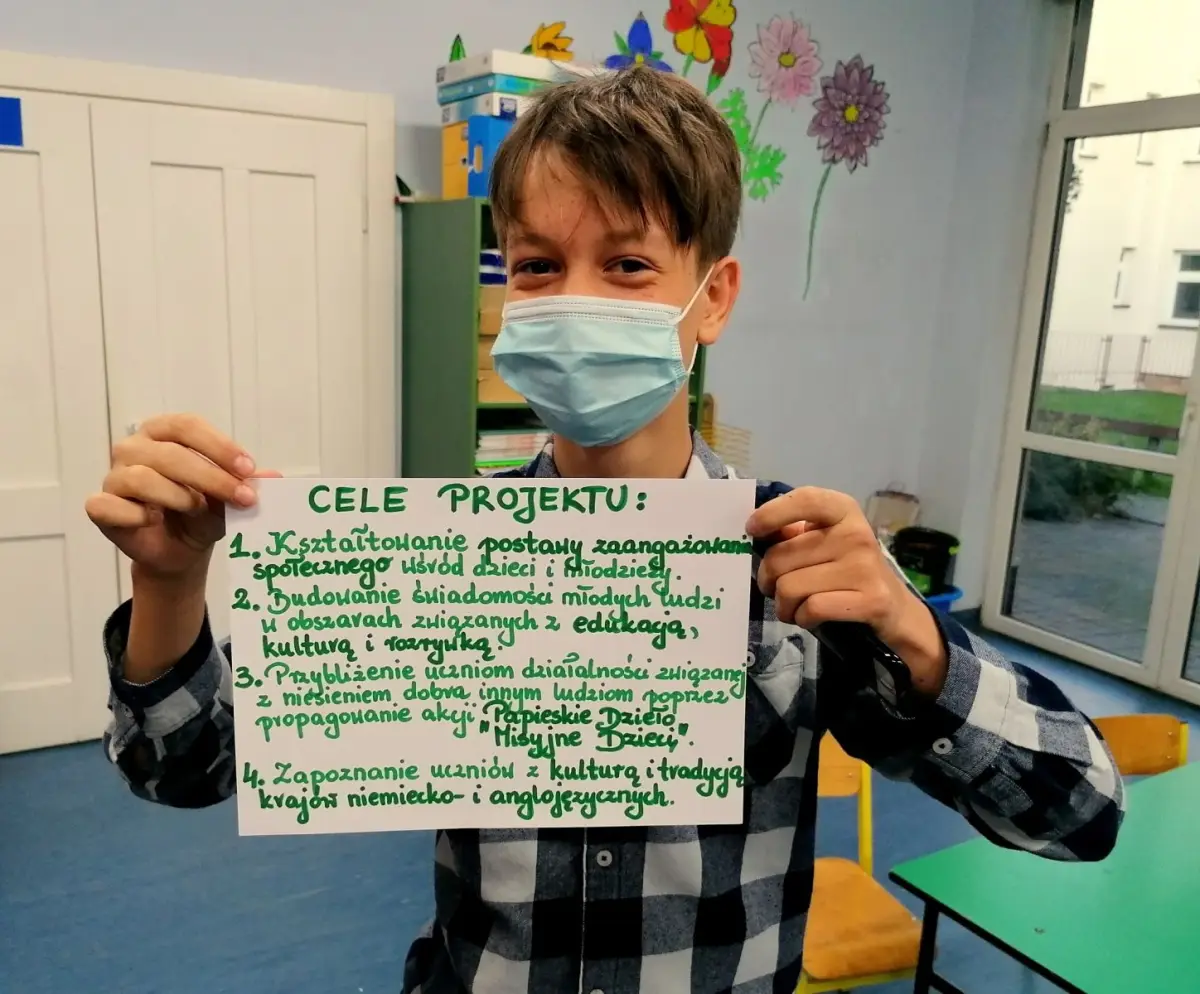 CELE PROJEKTU:
1. Kształtowanie postawy zaangażowania
społecznego wśród dzieci i młodzieży.
2. Budowanie świadomości młodych ludzi
w obszarach związanych z edukacją,
kulturą i rozrywką.
3. Przybliżenie uczniom działalności związanej
z niesieniem dobra innym ludziom poprzez
propagowanie akcji "Papieskie Dzieło
Misyjne Dzieci".
4. Zapoznanie uczniów z kulturą i tradycją
krajów niemiecko- i anglojęzycznych.